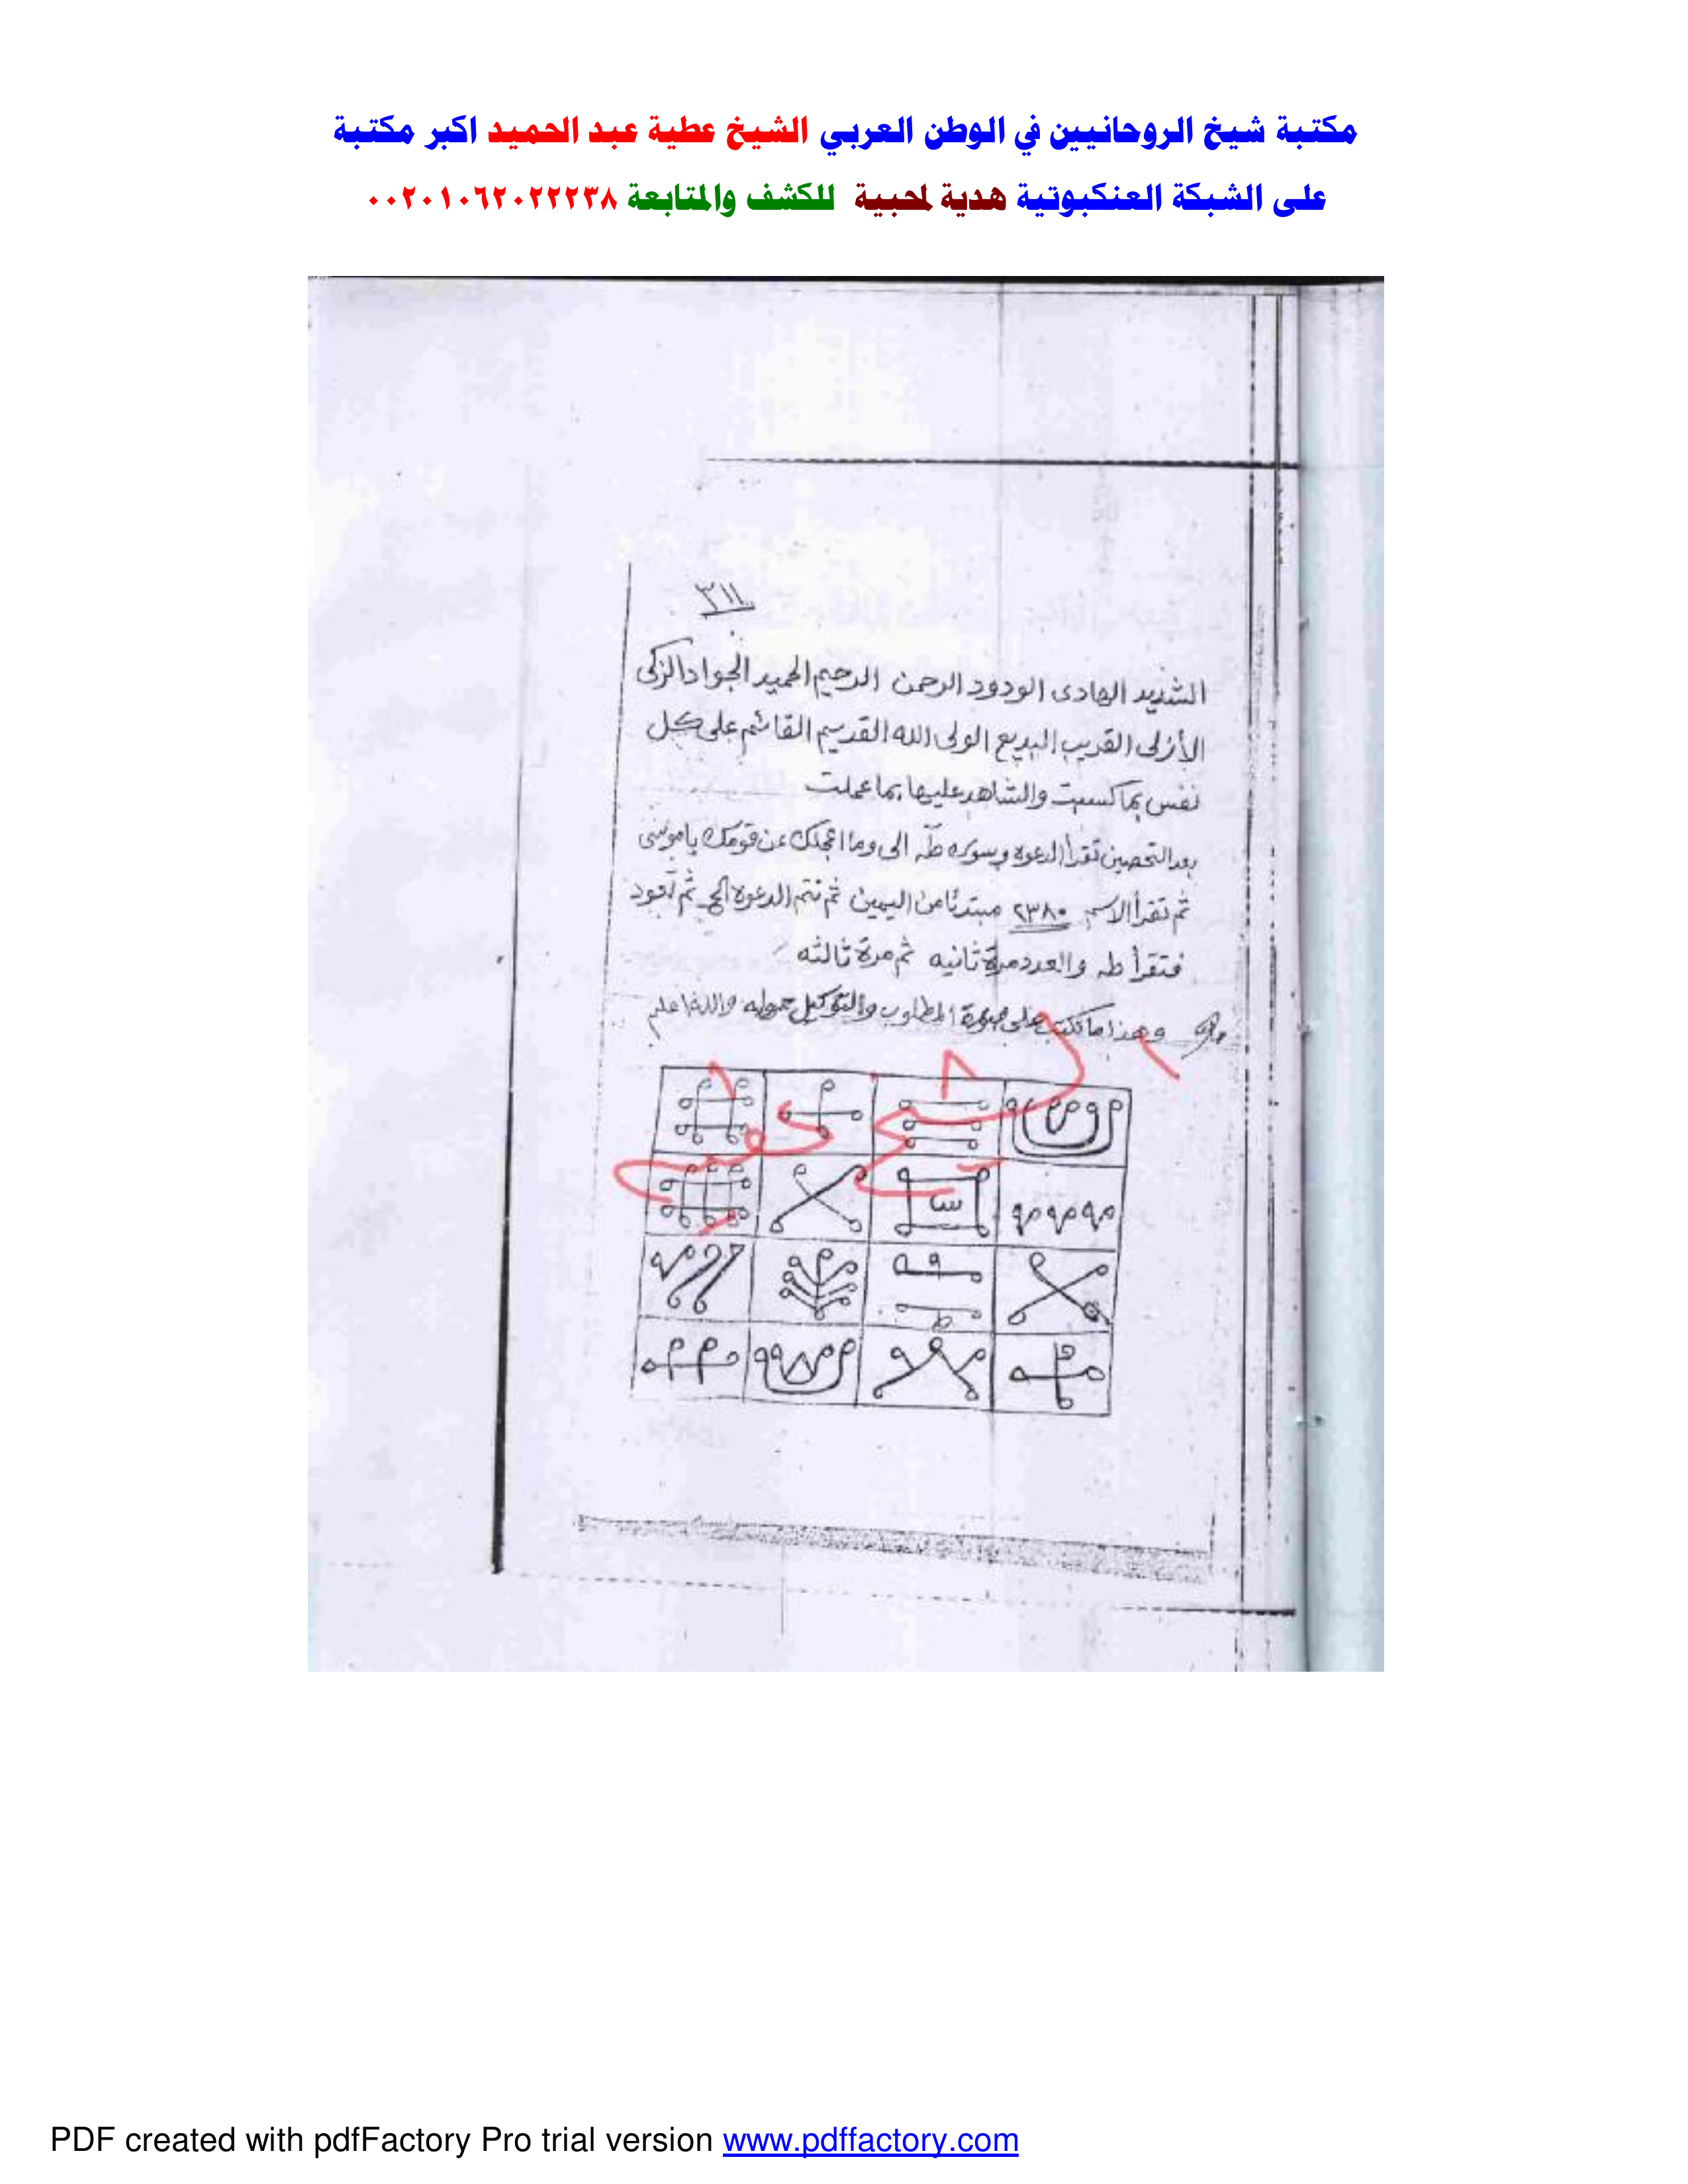 مكتبة شيخ الروحانيين في الوطن العربي الشيخ عطية عبد الحميد اكبر مكتبة
على الشبكة العنكبوتية هدية لمحبية للكشف والمتابعة ٠٠٢٠١٠٦٢٠٢٢٢٣٨
٣١١
الشديد الهادى الودود الرحمن الرحيم الحميد الجواد الزكى
الأزلى القريب البديع الولى الله القديم القائم على كل
نفس بما كسبت والشاهد عليها بما عملت
بعد التحصين تقرأ الدعوه وسوره طه الى وما اعجلك عن قومك ياموسى
ثم تقرأ الاسم ٢٣٨٠ مبتدئا من اليمين ثم تتم الدعوه الخ ثم تعود
فتقرأ طه والعدد مرة ثانيه ثم مرة ثالثه
وهذا ما تكتب على صورة المطلوب والتوكيل حوله والله اعلم
س
PDF created with pdfFactory Pro trial version www.pdffactory.com